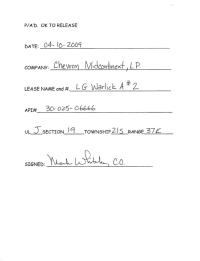 P/A'D. OK TO RELEASE
DATE: 04-10-2009
COMPANY: Chevron Midcontinent, L.P.
LEASE NAME and #. L G Warlick A # 2
API# 30-025-06666
UL J SECTION 19 TOWNSHIP 21S RANGE 37E
SIGNED: Mark Whitaker, C.O.